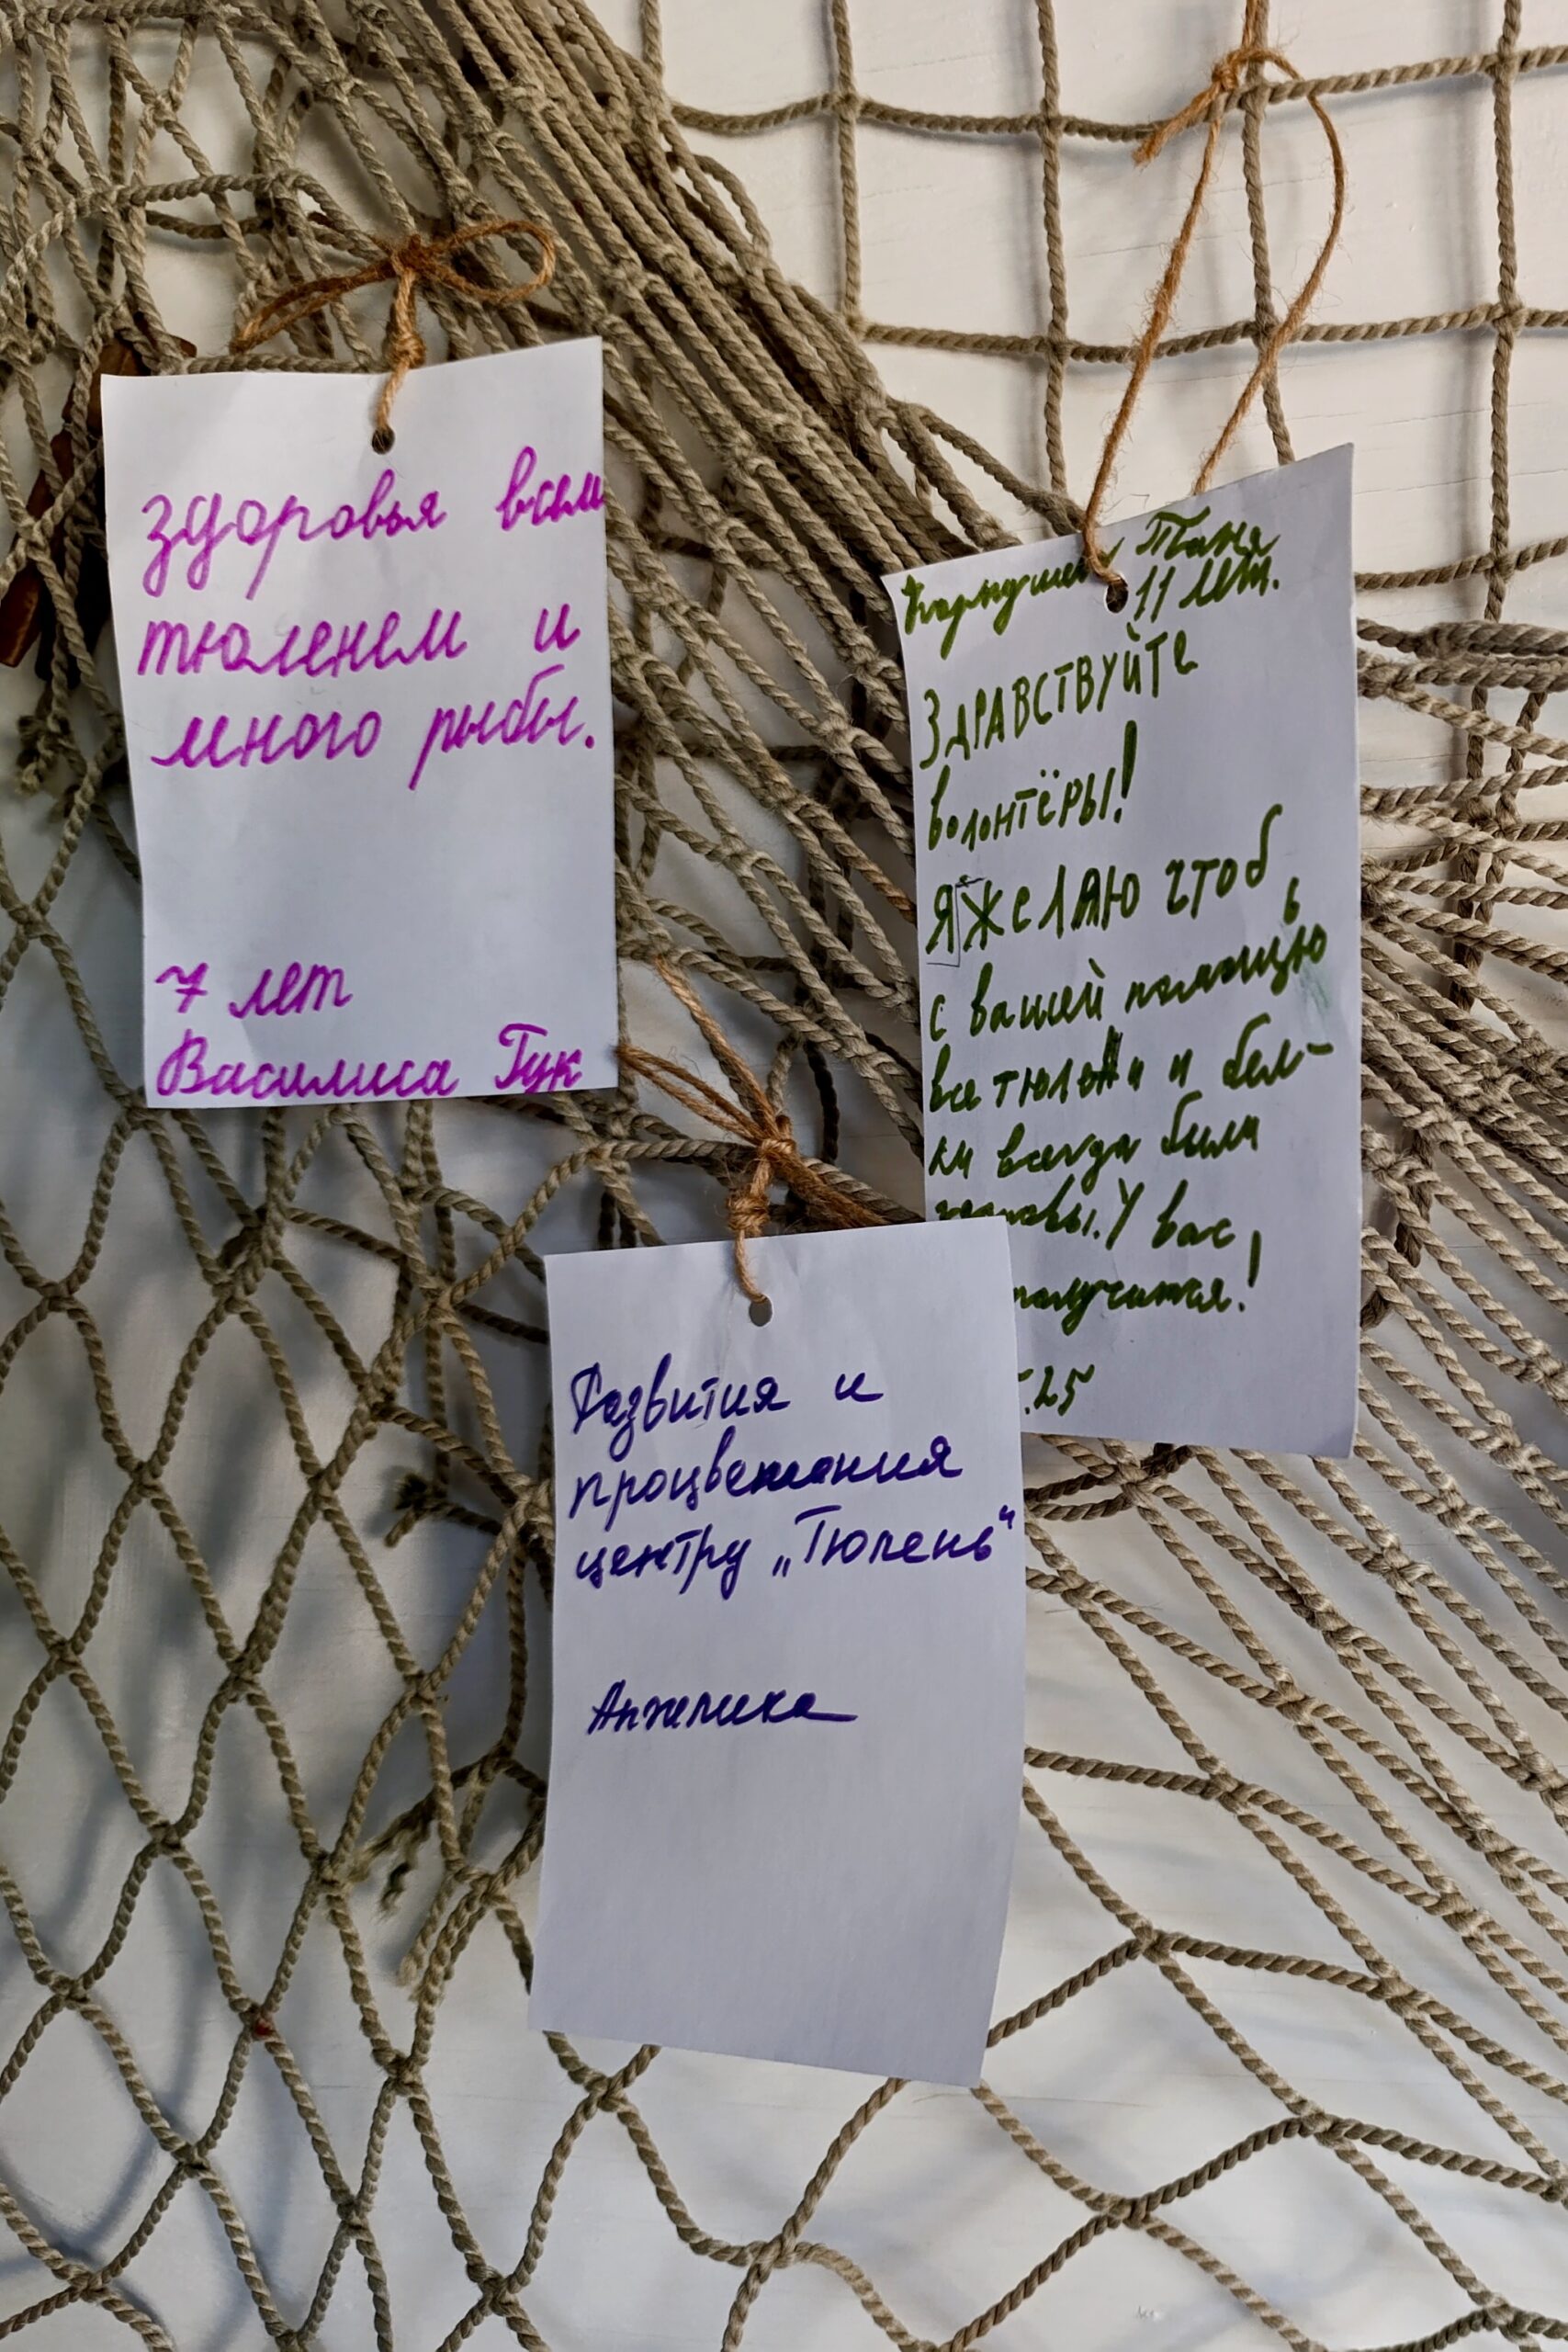 здоровья всем
тюленем и
много рыбы.
7 лет
Василиса Гук
Таня
11 лет.
ЗДРАВСТВУЙТе
волонтёры!
Я желаю чтоб
с вашей помощью
все тюлени и бел-
ки всегда были
здоровы. У вас
получится!
.25
Развития и
процветания
центру „Тюлень“
Анжелика